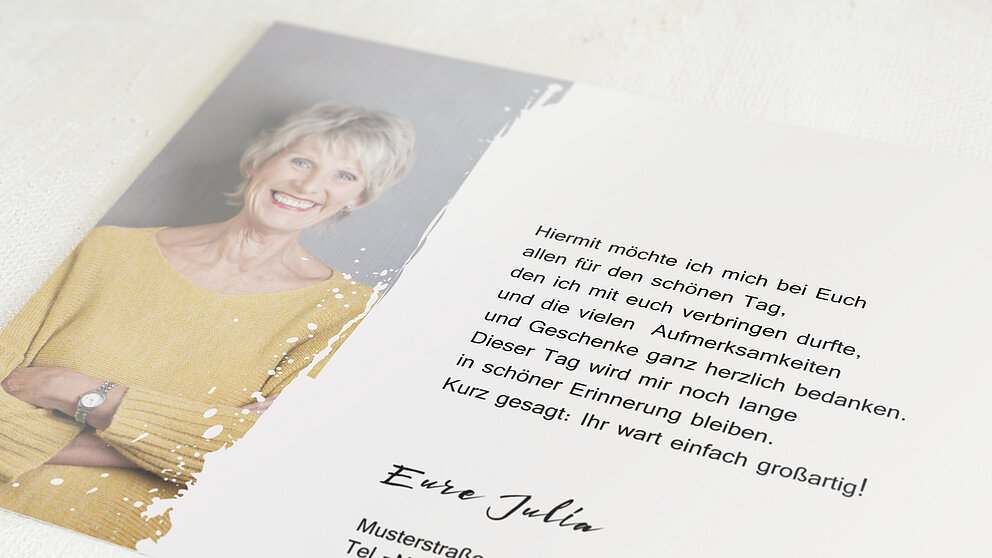 Hiermit möchte ich mich bei Euch
allen für den schönen Tag,
den ich mit euch verbringen durfte,
und die vielen Aufmerksamkeiten
und Geschenke ganz herzlich bedanken.
Dieser Tag wird mir noch lange
in schöner Erinnerung bleiben.
Kurz gesagt: Ihr wart einfach großartig!
Eure Julia
Musterstraße
Tel